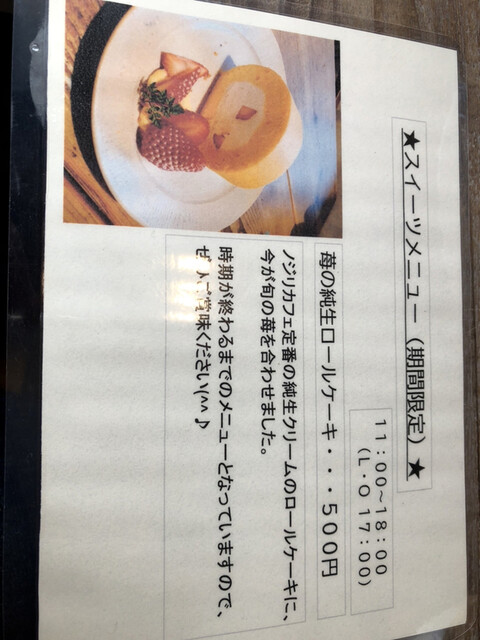 ★スイーツメニュー（期間限定）★
11：00～18：00
（L・O 17：00）
苺の純生ロールケーキ・・・500円
ノジリカフェ定番の純生クリームのロールケーキに、
今が旬の苺を合わせました。
時期が終わるまでのメニューとなっていますので、
ぜひご賞味ください(^^♪